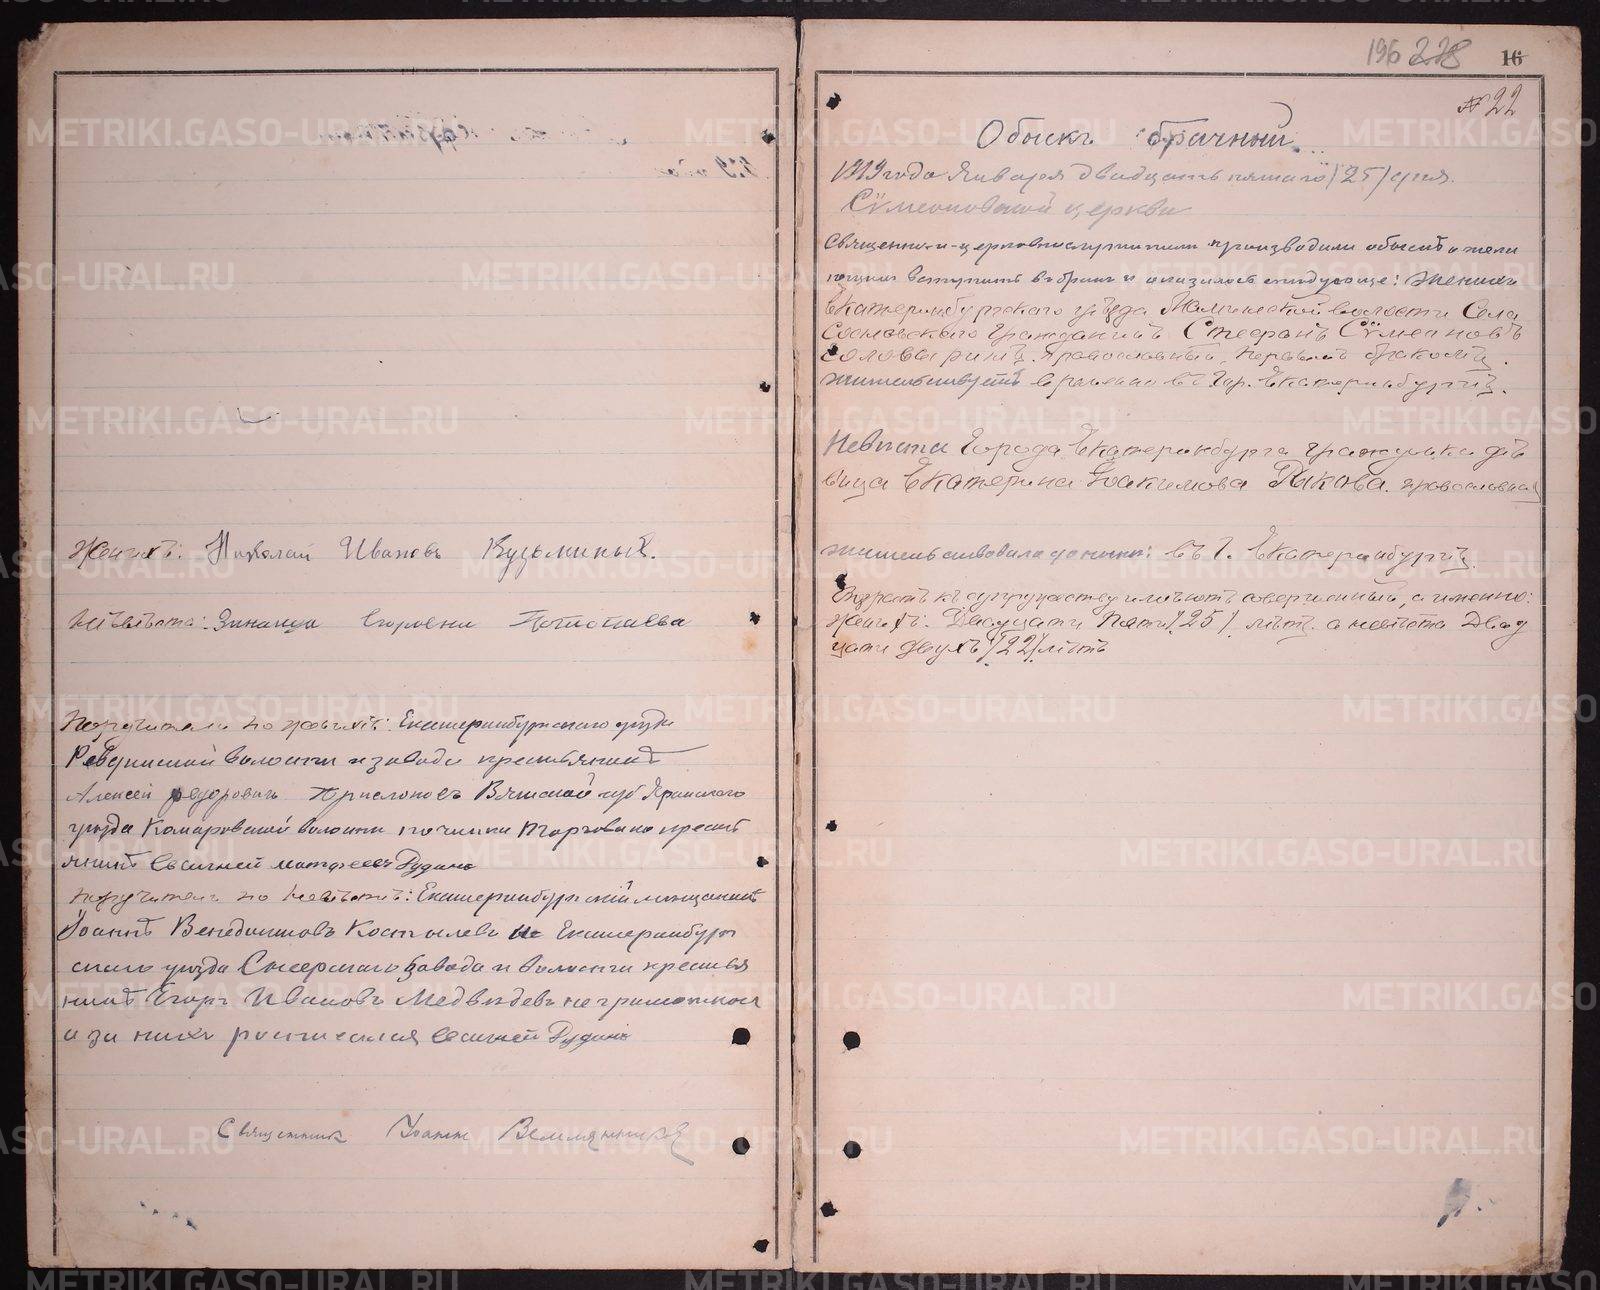 Женихъ: Николай Ивановъ Кузьминый.
Невѣста: Зинаида Егоровна Потопаева
Поручители по женихѣ: Екатеринбургскаго уѣзда
Ревдинской волости и завода крестьянинъ
Алексей Федоровичъ Вятской губ Яранскаго
уѣзда Комаровской волости починка крестъ
янинъ Евсигней Матфеевъ Дудинъ
поручители по невѣстѣ: Екатеринбургский мещанинъ
Иоаннъ Венедиктовъ Костылевъ и Екатеринбург
скаго уѣзда Сысерскаго завода и волости крестья
нинъ Егоръ Ивановъ Медвѣдевъ неграмотной
а за нихъ росписался Евсигней Дудинъ
Священникъ Иоаннъ
196 228 16
№ 22
Обыскъ брачный.
1919 года Января двадцать пятаго /25/ дня.
Сѵмеоновской церкви
Священно-и-церковнослужители производили обыскъ о жела
ющихъ вступить въ бракъ и оказалось следующее: Женихъ
Екатеринбургскаго уѣзда волости Села
Сосновскаго Гражданинъ Стефанъ Сѵмеоновъ
Православный, первымъ бракомъ.
жительствуетъ временно въ Гор. Екатеринбургѣ.
Невѣста Города Екатеринбурга гражданка дѣ
вица Екатерина Иоакимова Рыкова. православная
жительствовала до ныне: въ Г. Екатеринбургѣ.
Возрастъ къ супружеству имѣютъ совершенный, а именно:
Женихъ. Двадцати Пяти /25/ лѣтъ. а невѣста Двад
цати двухъ /22/ лѣтъ
METRIKI.GASO-URAL.RU